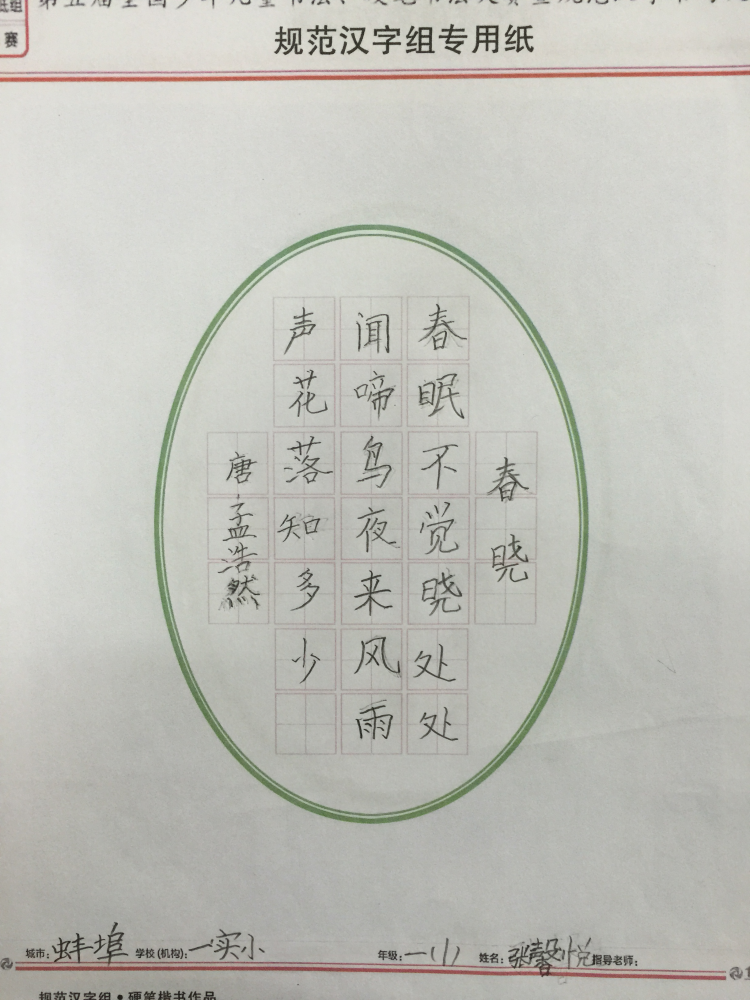 纸组
赛
规范汉字组专用纸
春晓
春眠不觉晓处处
闻啼鸟夜来风雨
声花落知多少
唐·孟浩然
城市：蚌埠 学校(机构)：一实小 年级：一(1) 姓名：张馨悦 指导老师：
规范汉字组·硬笔楷书作品